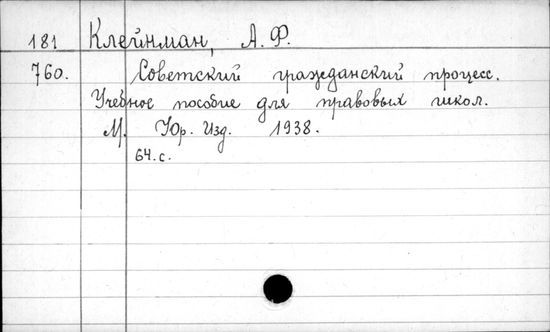 181 Клейнман, А. Ф.
760. Советский гражданский процесс.
Учебное пособие для правовых школ.
М. Юр. Изд. 1938.
64.с.